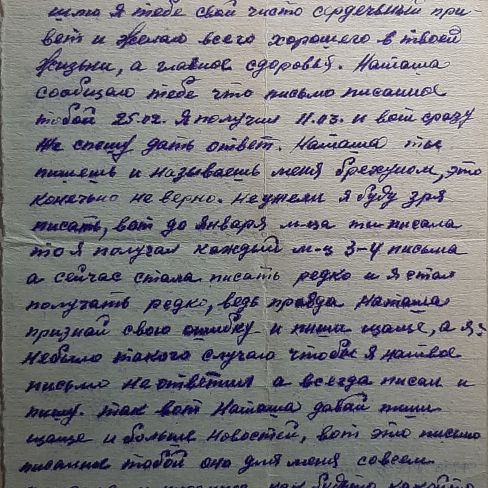 шлю я тебе свой чисто сердечьный при-
вет и желаю всего хорошего в твоей
жизьни, а главное сдоровья. Наташа
сообщаю тебе что письмо писанное
тобой 25.02. Я получил 11.03. и вот сразу
же спешу дать ответ. Наташа ты
пишешь и называешь меня брехуном, это
конечьно не верно. Неужели я буду зря
писать, вот до января м-ца ты писала
то я получал каждый м-ц 3-4 письма
а сейчас стала писать редко и я стал
получать редко, ведь правда Наташа
признай свою ошибку и пиши чаще, а я:
небыло такого случаю чтобы я натвое
письмо неответил а всегда писал и
пишу. так вот Наташа давай пиши
чаще и больше новостей, вот это письмо
писанное тобой оно для меня совсем
как будьто